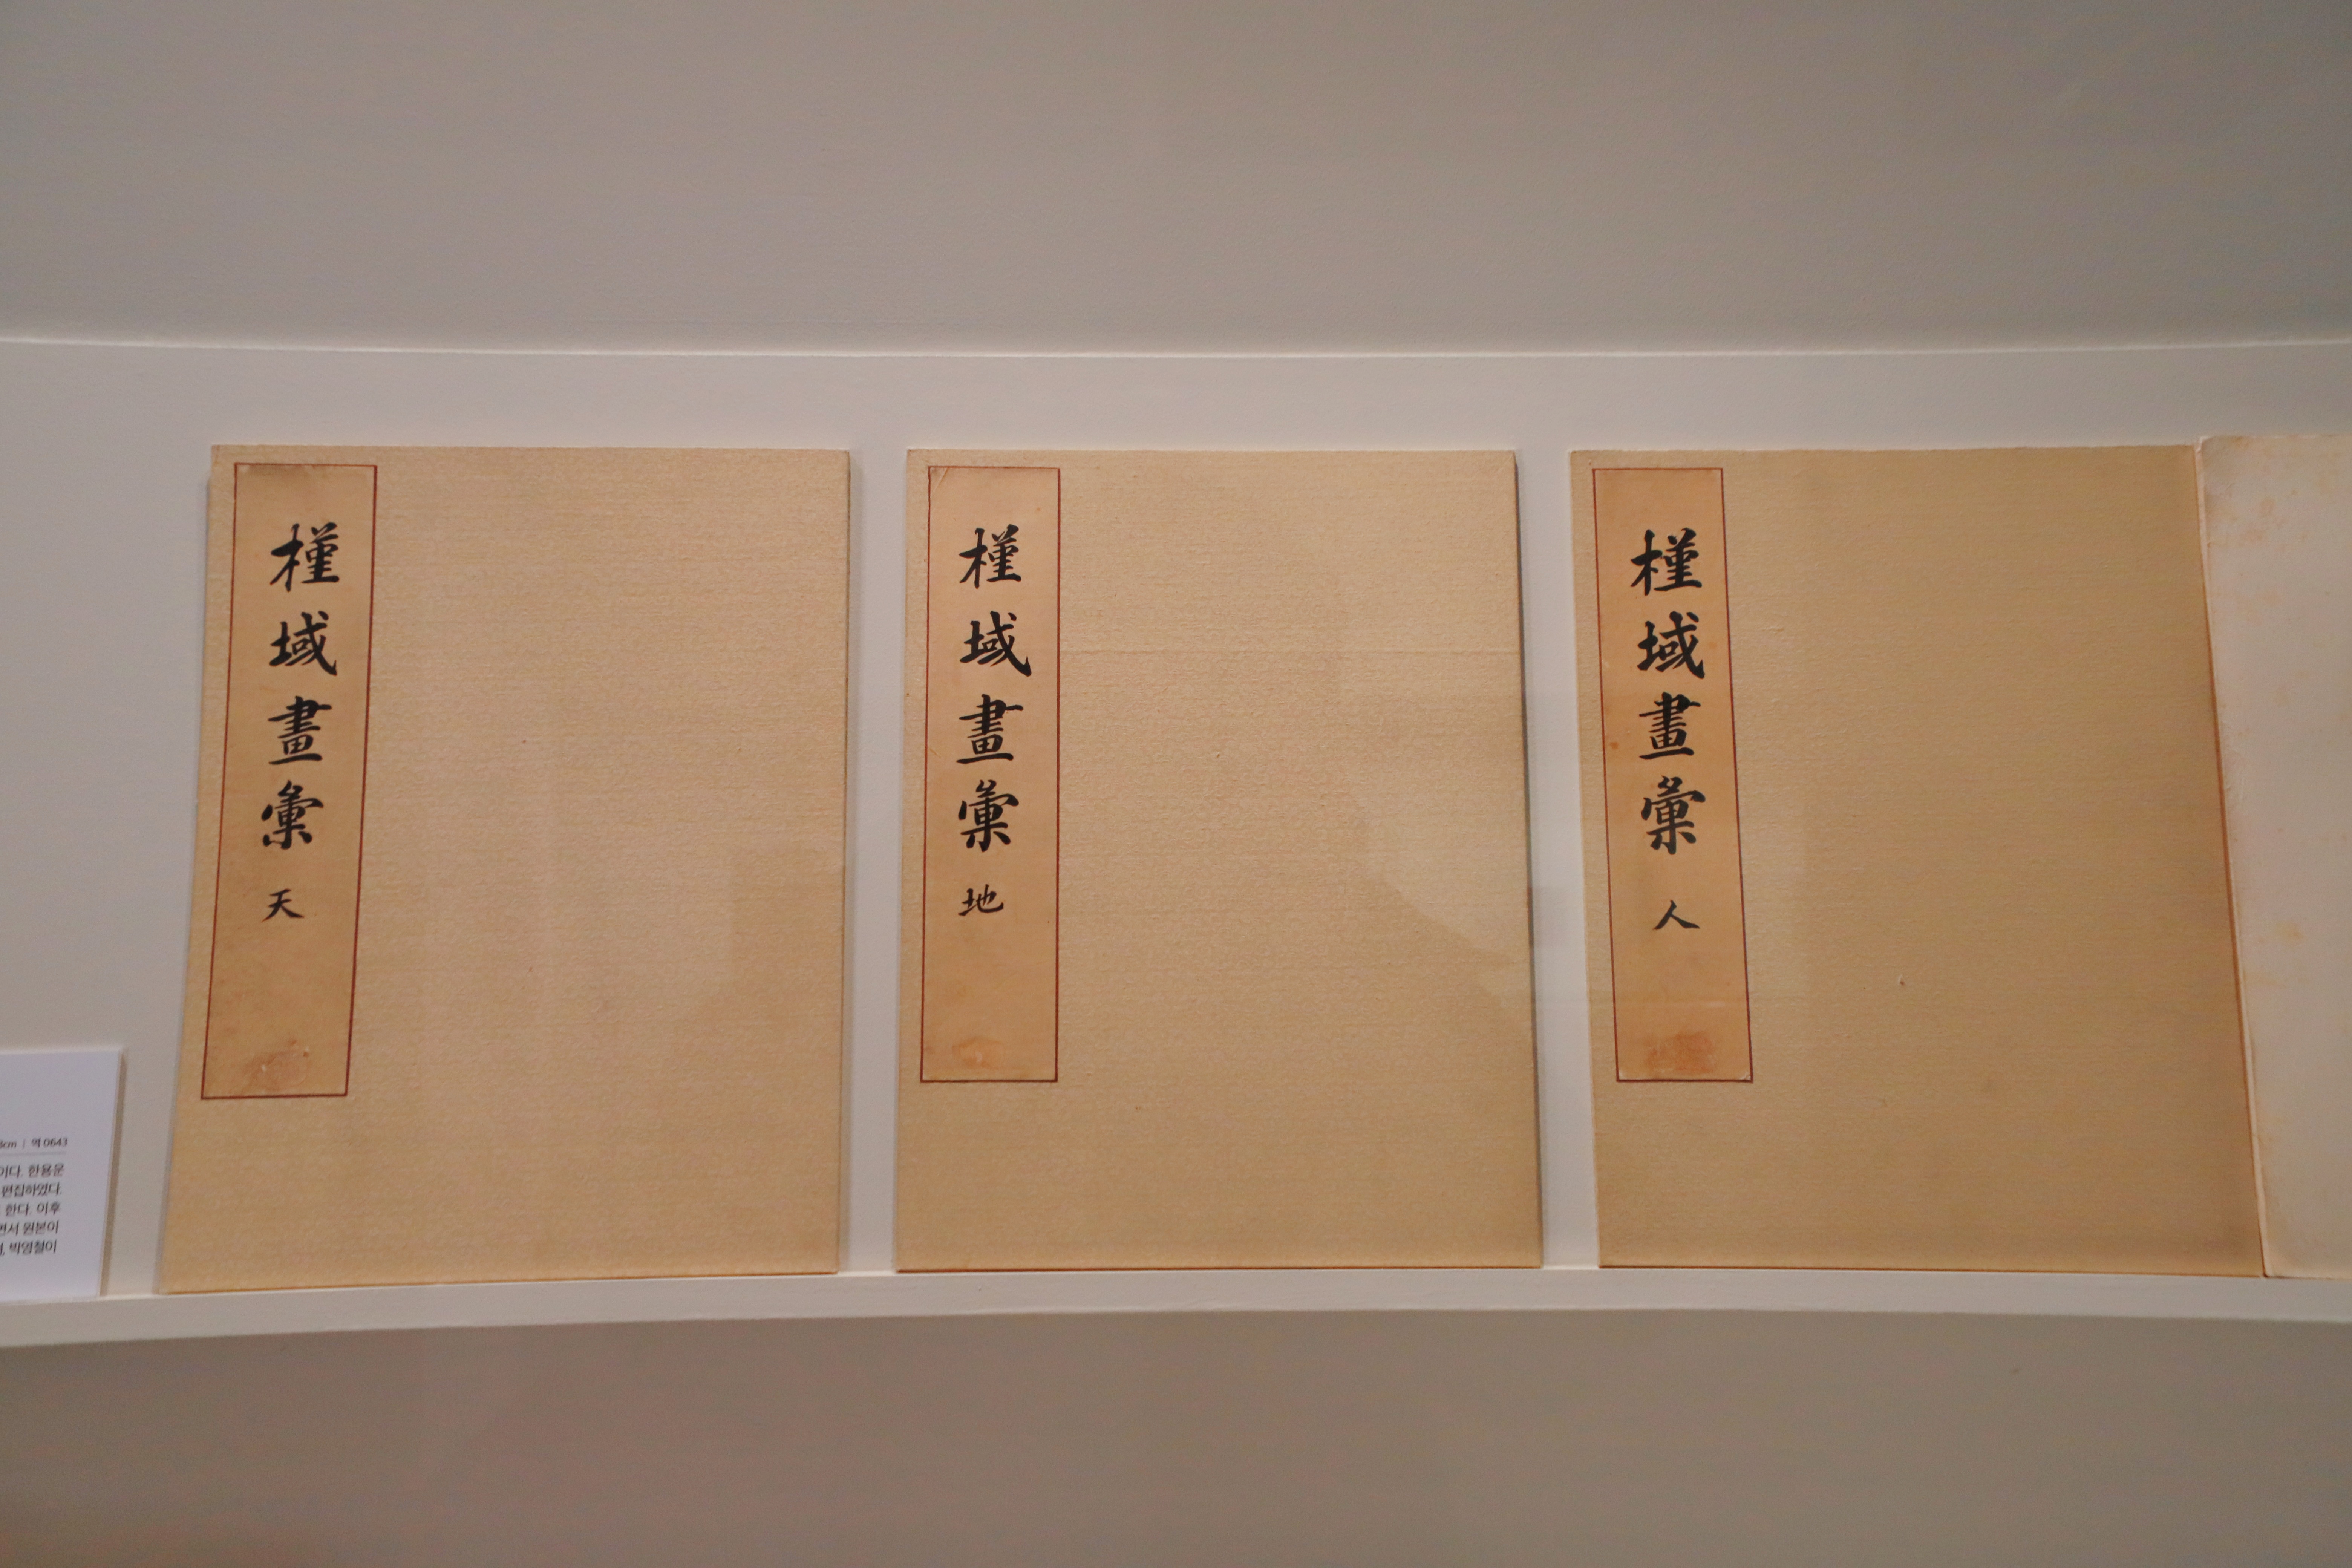 역 0643
이다. 한용운
편집하였다.
한다. 이후
면서 원본이
박영철이
槿域畫彙 天
槿域畫彙 地
槿域畫彙 人